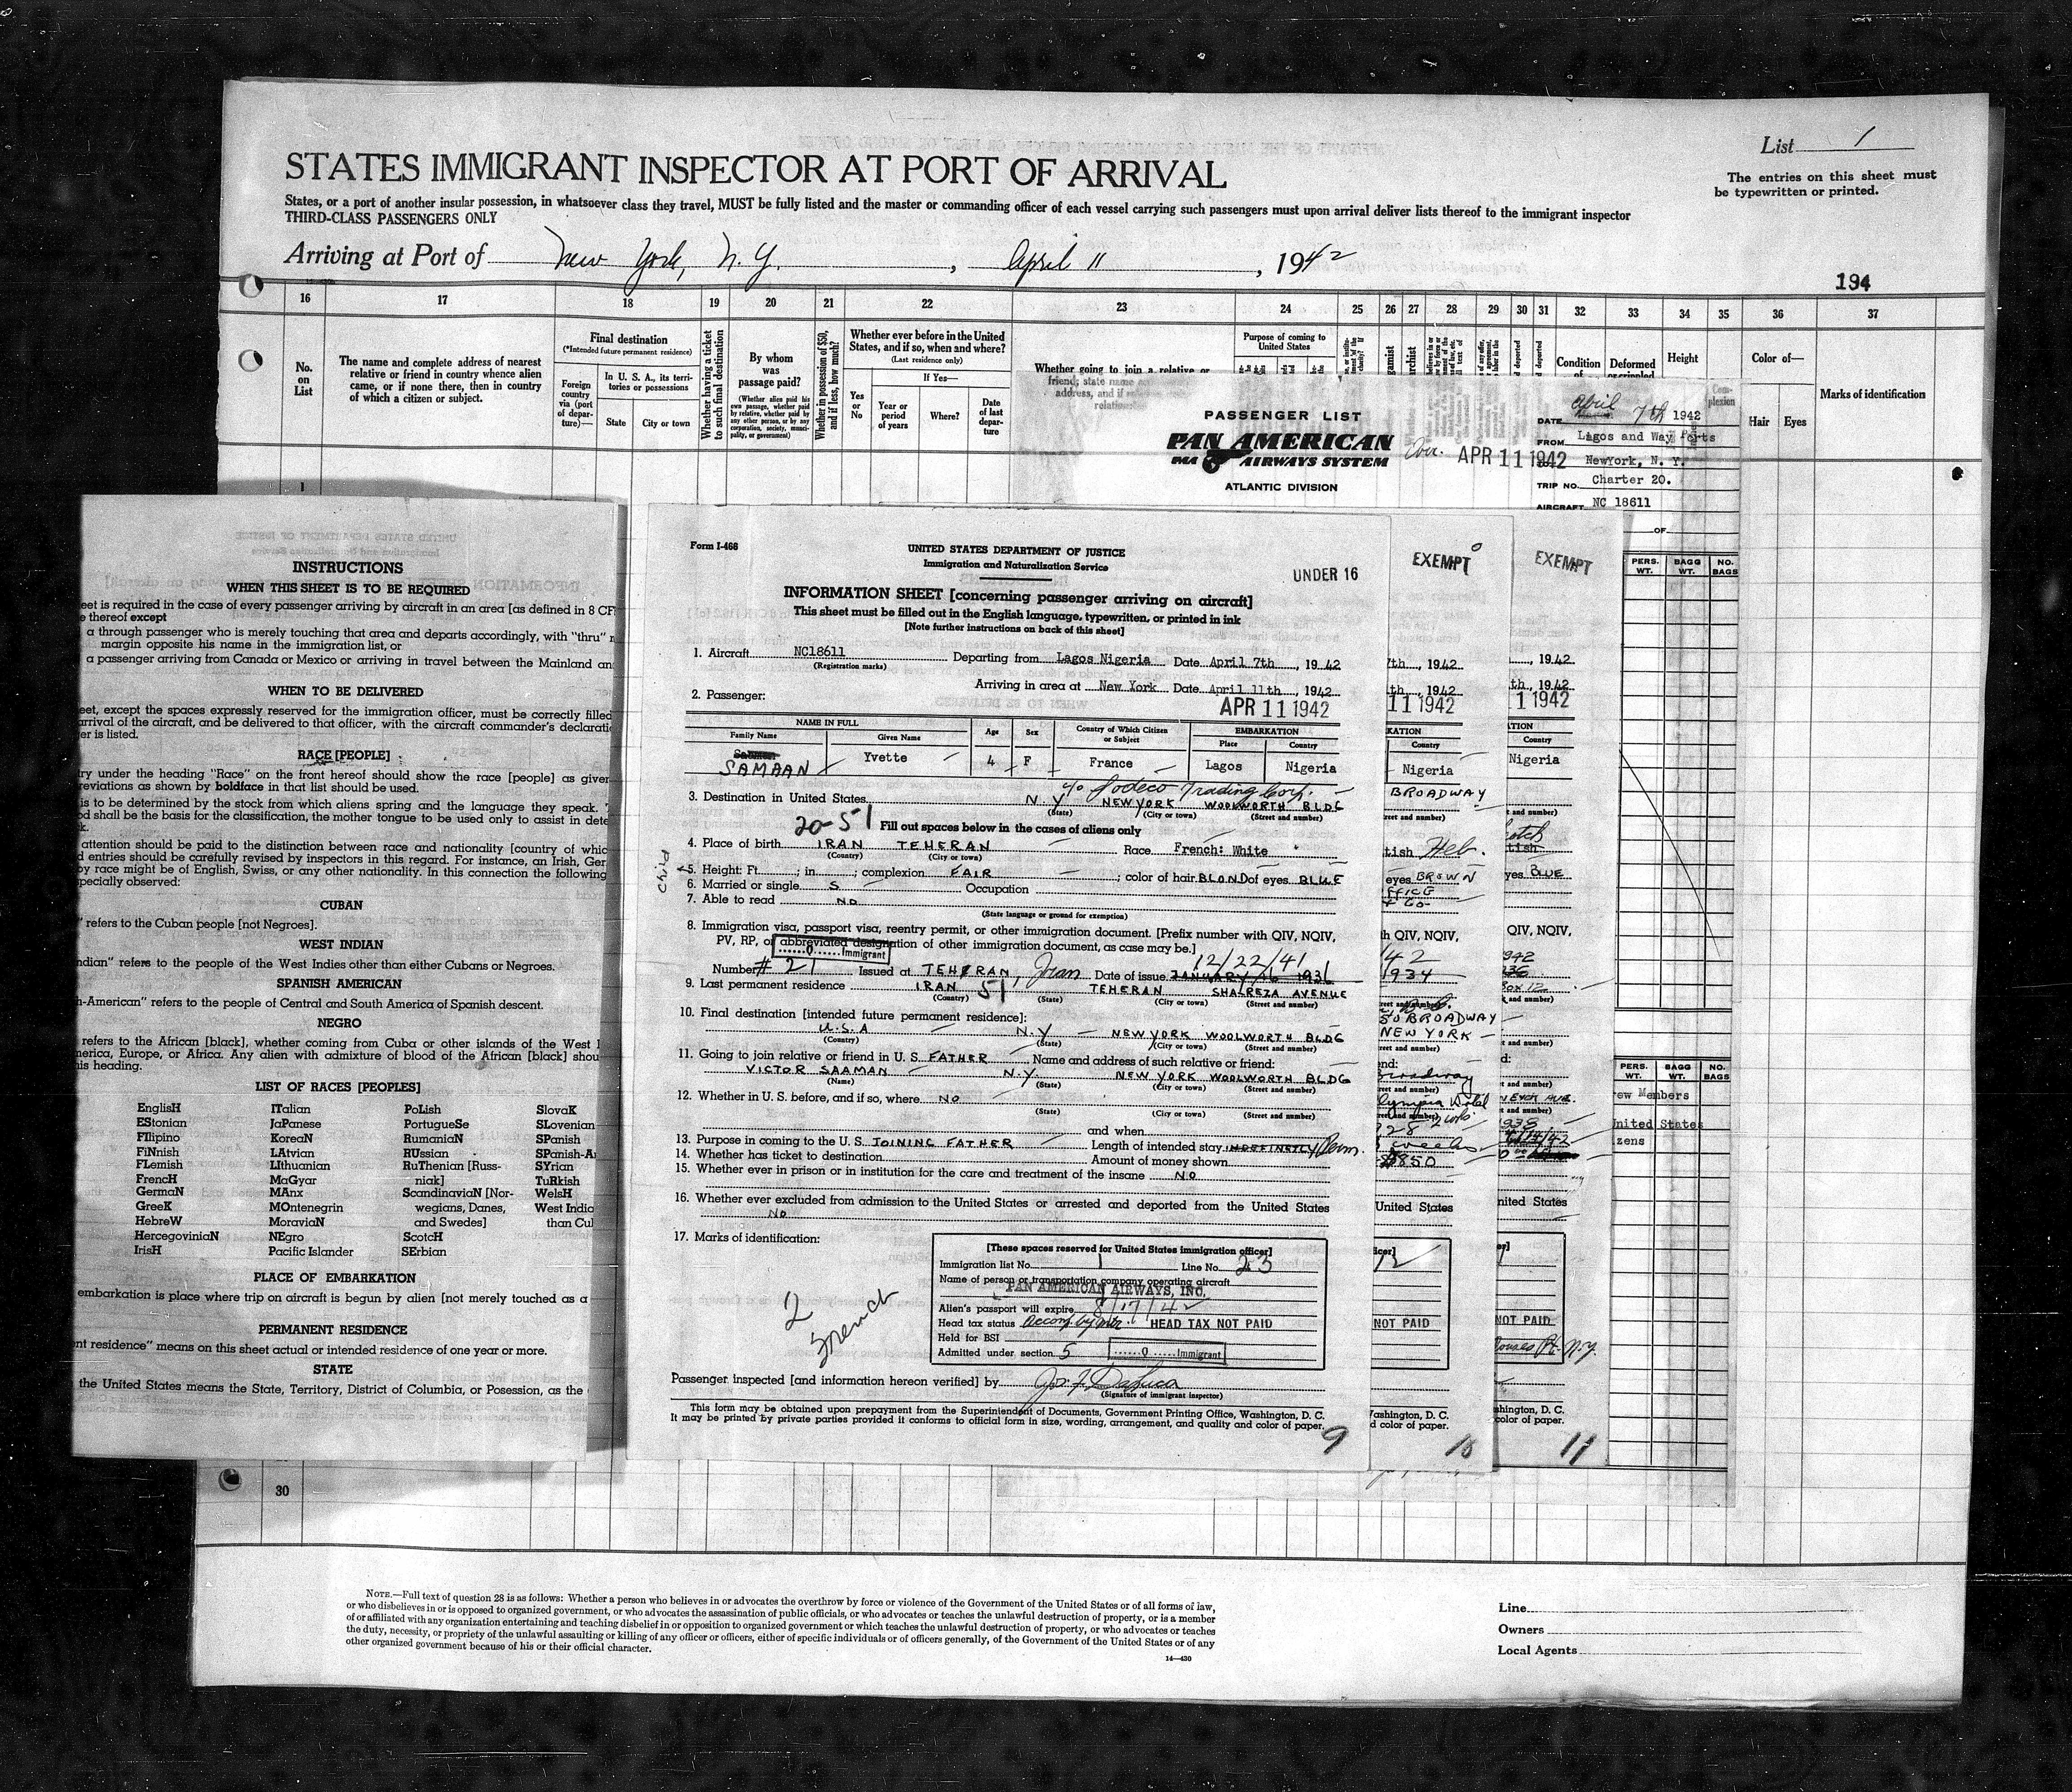 List 1
STATES IMMIGRANT INSPECTOR AT PORT OF ARRIVAL
The entries on this sheet must
be typewritten or printed.
States, or a port of another insular possession, in whatsoever class they travel, MUST be fully listed and the master or commanding officer of each vessel carrying such passengers must upon arrival deliver lists thereof to the immigrant inspector
THIRD-CLASS PASSENGERS ONLY
Arriving at Port of New York, N.Y., April 11, 1942
194
16 17 18 19 20 21 22 23 24 25 26 27 28 29 30 31 32 33 34 35 36 37
No. on List
The name and complete address of nearest
relative or friend in country whence alien
came, or if none there, then in country
of which a citizen or subject.
Final destination
(*Intended future permanent residence)
Foreign country via (port of departure)—
In U. S. A., its territories or possessions
State
City or town
Whether having a ticket to such final destination
By whom was passage paid?
(Whether alien paid his own passage, whether paid by relative, whether paid by any other person, or by any corporation, society, municipality, or government)
Whether in possession of $50, and if less, how much?
Whether ever before in the United
States, and if so, when and where?
(Last residence only)
Yes or No
If Yes—
Year or period of years
Where?
Date of last departure
Whether going to join a relative or
friend; state name
address, and if
Purpose of coming to
United States
Condition of
Deformed or crippled
Height
Complexion
Color of—
Hair Eyes
Marks of identification
PASSENGER LIST
PAN AMERICAN
PAA AIRWAYS SYSTEM
ATLANTIC DIVISION
APR 11 1942
DATE April 7th 1942
FROM Lagos and Way Ports
NewYork, N. Y.
TRIP NO. Charter 20.
AIRCRAFT NC 18611
OF
PERS. WT. BAGG WT. NO. BAGS
1
INSTRUCTIONS
WHEN THIS SHEET IS TO BE REQUIRED
eet is required in the case of every passenger arriving by aircraft in an area [as defined in 8 CF
e thereof except
a through passenger who is merely touching that area and departs accordingly, with "thru"
margin opposite his name in the immigration list, or
a passenger arriving from Canada or Mexico or arriving in travel between the Mainland an
WHEN TO BE DELIVERED
eet, except the spaces expressly reserved for the immigration officer, must be correctly filled
arrival of the aircraft, and be delivered to that officer, with the aircraft commander's declarati
er is listed.
RACE [PEOPLE]
ry under the heading "Race" on the front hereof should show the race [people] as given
reviations as shown by boldface in that list should be used.
is to be determined by the stock from which aliens spring and the language they speak.
od shall be the basis for the classification, the mother tongue to be used only to assist in dete
k.
attention should be paid to the distinction between race and nationality [country of whic
d entries should be carefully revised by inspectors in this regard. For instance, an Irish, Ger
by race might be of English, Swiss, or any other nationality. In this connection the following
specially observed:
CUBAN
" refers to the Cuban people [not Negroes].
WEST INDIAN
ndian" refers to the people of the West Indies other than either Cubans or Negroes.
SPANISH AMERICAN
h-American" refers to the people of Central and South America of Spanish descent.
NEGRO
refers to the African [black], whether coming from Cuba or other islands of the West I
merica, Europe, or Africa. Any alien with admixture of blood of the African [black] shou
his heading.
LIST OF RACES [PEOPLES]
EnglisH ITalian PoLish SlovaK
EStonian JaPanese PortugueSe SLovenian
FIlipino KoreaN RumaniaN SPanish
FiNnish LAtvian RUssian SPanish-A
FLemish LIthuanian RuThenian [Russ- SYrian
FrencH MaGyar niak] TuRkish
GermaN MAnx ScandinaviaN [Nor- WelsH
GreeK MOntenegrin wegians, Danes, West India
HebreW MoraviaN and Swedes] than Cu
HercegoviniaN NEgro ScotcH
IrisH Pacific Islander SErbian
PLACE OF EMBARKATION
embarkation is place where trip on aircraft is begun by alien [not merely touched as a
PERMANENT RESIDENCE
nt residence" means on this sheet actual or intended residence of one year or more.
STATE
the United States means the State, Territory, District of Columbia, or Posession, as the
Form I-466
UNITED STATES DEPARTMENT OF JUSTICE
Immigration and Naturalization Service
UNDER 16
INFORMATION SHEET [concerning passenger arriving on aircraft]
This sheet must be filled out in the English language, typewritten, or printed in ink
[Note further instructions on back of this sheet]
1. Aircraft NC18611 Departing from Lagos Nigeria Date April 7th, 1942
(Registration marks)
Arriving in area at New York Date April 11th, 1942
2. Passenger:
APR 11 1942
NAME IN FULL Age Sex Country of Which Citizen or Subject EMBARKATION
Family Name Given Name Place Country
SAMAAN Yvette 4 F France Lagos Nigeria
c/o Sodeco Trading Corp.
3. Destination in United States N.Y NEW YORK WOOLWORTH BLDG
(State) (City or town) (Street and number)
20-51
Fill out spaces below in the cases of aliens only
4. Place of birth IRAN TEHERAN Race French: White
(Country) (City or town)
child
5. Height: Ft. ; in. ; complexion FAIR ; color of hair BLOND of eyes BLUE
6. Married or single S Occupation
7. Able to read NO
(State language or ground for exemption)
8. Immigration visa, passport visa, reentry permit, or other immigration document. [Prefix number with QIV, NQIV,
PV, RP, or abbreviated designation of other immigration document, as case may be.]
0 Immigrant
12/22/41
Number # 21 Issued at TEHERAN, Iran Date of issue JANUARY 16 1931
9. Last permanent residence IRAN 51 TEHERAN SHALREZA AVENUE
(Country) (State) (City or town) (Street and number)
10. Final destination [intended future permanent residence]:
U.S.A N.Y NEW YORK WOOLWORTH BLDG
(Country) (State) (City or town) (Street and number)
11. Going to join relative or friend in U. S. FATHER Name and address of such relative or friend:
VICTOR SAAMAN N.Y. NEW YORK WOOLWORTH BLDG
(Name) (State) (City or town) (Street and number)
12. Whether in U. S. before, and if so, where NO
(State) (City or town) (Street and number)
and when
13. Purpose in coming to the U. S. JOINING FATHER Length of intended stay INDEFINETLY Perm.
14. Whether has ticket to destination Amount of money shown
15. Whether ever in prison or in institution for the care and treatment of the insane NO
16. Whether ever excluded from admission to the United States or arrested and deported from the United States
NO
17. Marks of identification:
2
French
[These spaces reserved for United States immigration officer]
Immigration list No. 1 Line No. 23
Name of person or transportation company operating aircraft
PAN AMERICAN AIRWAYS, INC.
Alien's passport will expire 8/17/42
Head tax status Accomp. by mr. HEAD TAX NOT PAID
Held for BSI
Admitted under section 5 0 Immigrant
Passenger inspected [and information hereon verified] by Jos. F. DaLuca
(Signature of immigrant inspector)
This form may be obtained upon prepayment from the Superintendent of Documents, Government Printing Office, Washington, D. C.
It may be printed by private parties provided it conforms to official form in size, wording, arrangement, and quality and color of paper.
9
EXEMPT
7th, 1942
th, 1942
11 1942
KATION
Country
Nigeria
BROADWAY
tish Heb.
eyes BROWN
th QIV, NQIV,
42
1934
50 BROADWAY
NEW YORK
Broadway
Olympia Hotel
28 2 wks
weeks
$850
United States
icer]
12
NOT PAID
Washington, D. C.
d color of paper.
10
EXEMPT
, 1942
th, 1942
1 1942
TION
Country
Nigeria
Scotch
tish
yes BLUE
QIV, NQIV,
1942
BOX 12
1938
nited States
er]
NOT PAID
N.Y.
shington, D. C.
color of paper.
11
PERS. WT. BAGG WT. NO. BAGS
rew Members
United States
izens
30
NOTE.—Full text of question 28 is as follows: Whether a person who believes in or advocates the overthrow by force or violence of the Government of the United States or of all forms of law,
or who disbelieves in or is opposed to organized government, or who advocates the assassination of public officials, or who advocates or teaches the unlawful destruction of property, or is a member
of or affiliated with any organization entertaining and teaching disbelief in or opposition to organized government or which teaches the unlawful destruction of property, or who advocates or teaches
the duty, necessity, or propriety of the unlawful assaulting or killing of any officer or officers, either of specific individuals or of officers generally, of the Government of the United States or of any
other organized government because of his or their official character.
14—430
Line
Owners
Local Agents